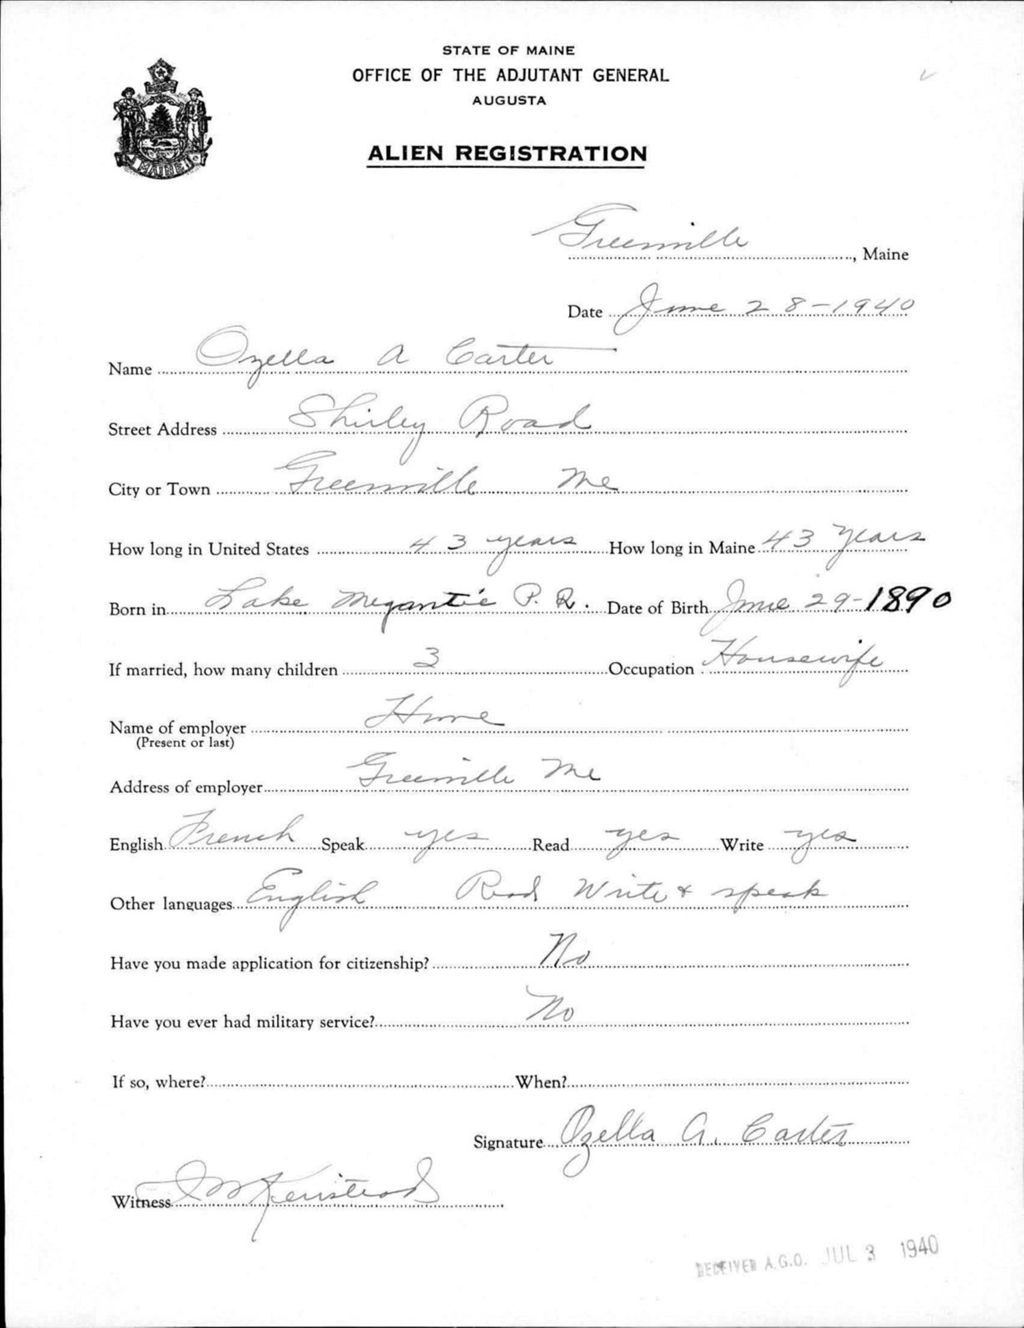 STATE OF MAINE
OFFICE OF THE ADJUTANT GENERAL
AUGUSTA
ALIEN REGISTRATION
MAINE
Greenville, Maine
Date June 28-1940
Name Ozella A Carter
Street Address Shirley Road
City or Town Greenville Me
How long in United States 43 years How long in Maine 43 years
Born in Lake Megantic P.Q. Date of Birth June 29-1890
If married, how many children 3 Occupation Housewife
Name of employer Home
(Present or last)
Address of employer Greenville Me
English French Speak yes Read yes Write yes
Other languages English Read Write & speak
Have you made application for citizenship? No
Have you ever had military service? No
If so, where? When?
Signature Ozella A. Carter
Witness
RECEIVED A.G.O. JUL 3 1940